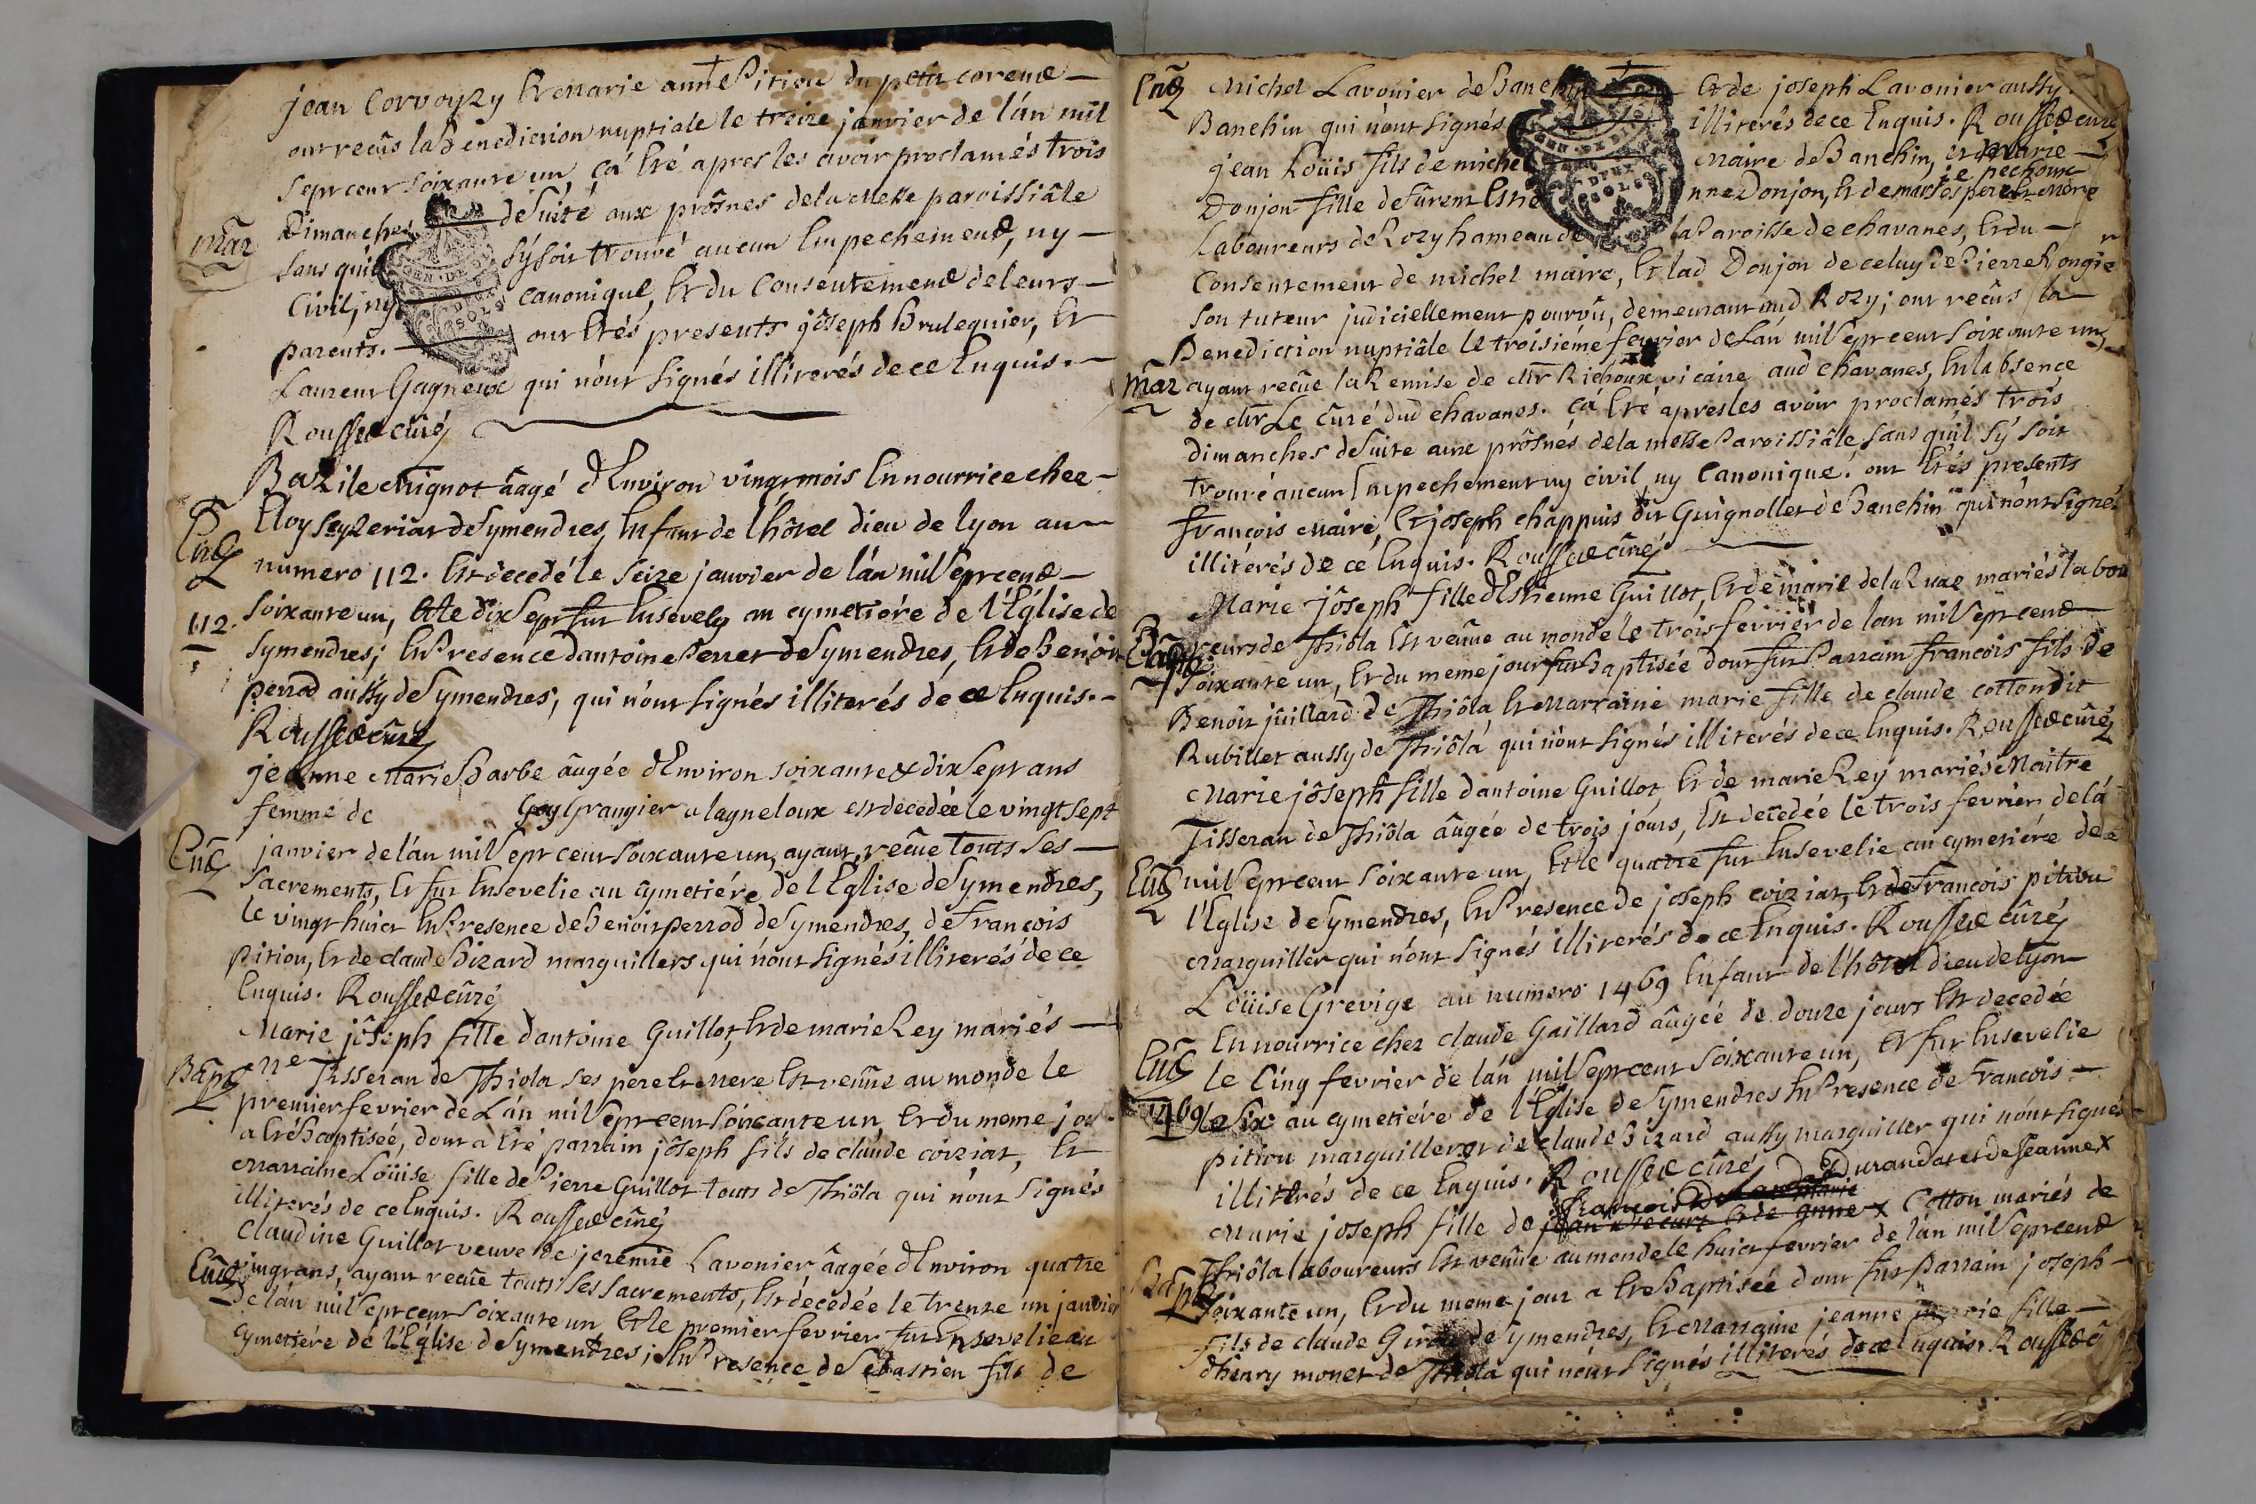 jean Corvoyzy Et Marie anne Pitiou du petit corene
ont recûs la Benediction nuptiale le treize janvier de l'án mil
sept cent soixante un, ça été apres les avoir proclamés trois
Mar
Dimanches de suite aux prôsnes de la Messe paroissiâle
sans qu'il s'y soit trouvé aucun Empechement, ny
Civil, ny canonique, Et du Consentement de leurs
parents. ont Etés presents jôseph Brulequier, Et
Laurent Gagneux qui n'ont signés illiterés de ce Enquis.
Rousset cûré
Bazile Mignot âagé d'Environ vingt mois En nourrice chez
Eloy Seyzeriat de Symendres, Enfant de l'hôtel dieu de lyon au
Ent
numero 112. Est decedé le seize janvier de l'án mil sept cent
112.
soixante un, Et le dix sept fut Ensevely au cymetiére de l'Église de
Symendres; En Presence d'antoine Perret de Symendres, Et de Benoit
perrod aussy de Symendres, qui n'ont signés illiterés de ce Enquis.
Rousset cûré
jeanne Marie Barbe âagée d'Environ soixante & dix sept ans
femme de Guy Grangier a lagneloux est decedée le vingt sept
Ent
janvier de l'án mil sept cent soixante un, ayant recûe touts ses
Sacrements, Et fut Ensevelie au cymetiére de l'Eglise de Symendres,
le vingt huict En Presence de Benoit perrod de Symendres, de François
pitiou, Et de claude Bizard marguillers qui n'ont signés illiterés de ce
Enquis. Rousset cûré
Marie jôseph fille d'antoine Guillot, Et de marie Rey mariés
Bapt
Me Tisseran de Thiola ses pere Et Mere Est venûe au monde le
premier fevrier de L'án mil sept cent soixante un Et du meme jour
a Eté Baptisée, dont a Eté parrain jôseph fils de claude coiziat, Et
Marraine Loüise fille de Pierre Guillot touts de Thiôla qui n'ont signés
illiterés de ce Enquis. Rousset cûré
Claudine Guillot veuve de jeremie Lavonier âagée d'Environ quatre
Ent
vingt ans, ayant recûe touts ses sacrements, Est decedée le trente un janvier
de l'án mil sept cent soixante un Et le premier fevrier fut Ensevelie au
cymetiére de l'Église de Symendres; En Presence de Sébastien fils de
Ent
Michel Lavonier de Banchin Et de joseph Lavonier aussy
Banchin qui n'ont signés illiterés de ce Enquis. Rousset cûré
jean Loüis fils de michel Maire de Banchin, et Marie
Donjon fille de fûrent Donjon, Et de ses pere et mere
Laboureurs de Rozy hameau de la Paroisse de chavanes, Et du
Consentement de michel maire, Et lad Donjon de celuy de Pierre Rongie
son tuteur judiciellement pourvû, demeurant aud Rozy; ont recûs la
Benediction nuptiâle le troisiéme fevrier de L'án mil sept cent soixante un,
Mar
ayant recûe la Remise de Mr Richoux, vicaire aud chavanes, En l'absence
de Mr Le cûré dud chavanes. çá Eté apres les avoir proclamés trois
dimanches de suite aux prôsnes de la messe Paroissiâle sans qu'il s'y soit
trouvé aucun Empechement ny civil, ny Canonique: ont Etés presents
françois Maire, Et joseph chappuis dit Guignollet de Banchin qui n'ont signés
illitérés de ce Enquis. Rousset cûré
Marie jôseph fille d'Estienne Guillot, Et de marie de la Ruae mariés labou
Bapt
reurs de Thiôla Est venûe au monde le trois fevrier de l'an mil sept cent
soixante un, Et du meme jour fut Baptisée dont fut Parrain francois fils de
Benôit jüillard de Thiôla Et Marraine marie fille de claude cotton dit
Rubillet aussy de Thiôla qui n'ont signés illiterés de ce Enquis. Rousset cûré
Marie jôseph fille d'antoine Guillot, Et de marie Rey mariés Maitre
Tisseran de Thiôla âagée de trois jours, Est decedée le trois fevrier de l'á
Ent
mil sept cent soixante un, Et le quatre fut Ensevelie au cymetiére de
l'Eglise de Symendres, En Presence de joseph coiziat, Et de François pitiou
Marguiller qui n'ont signés illiterés de ce Enquis. Rousset cûré
Loüise Grevige au numero 1469 Enfant de l'hôtel dieu de lyon
En nourrice chez claude Gaillard âagée de douze jours Est decedée
Ent
le Cinq fevrier de l'án mil sept cent soixante un, Et fut Ensevelie
1469
le six au cymetiére de l'Église de Symendres En Presence de François
pitiou marguiller et de claude Bizard aussy marguiller qui n'ont signés
illiterés de ce Enquis. Rousset cûré
françois Durandat et de Jeanne x
Marie joseph fille de x Cotton mariés de
Bapt
Thiôla laboureurs Est venûe au monde le huict fevrier de l'án mil sept cent
soixante un, Et du meme jour a Eté Baptisée dont fut Parrain joseph
fils de claude de Symendres, Et Marraine jeanne marie fille
d'henry monet de Thiola qui n'ont signés illiterés de ce Enquis. Rousset c